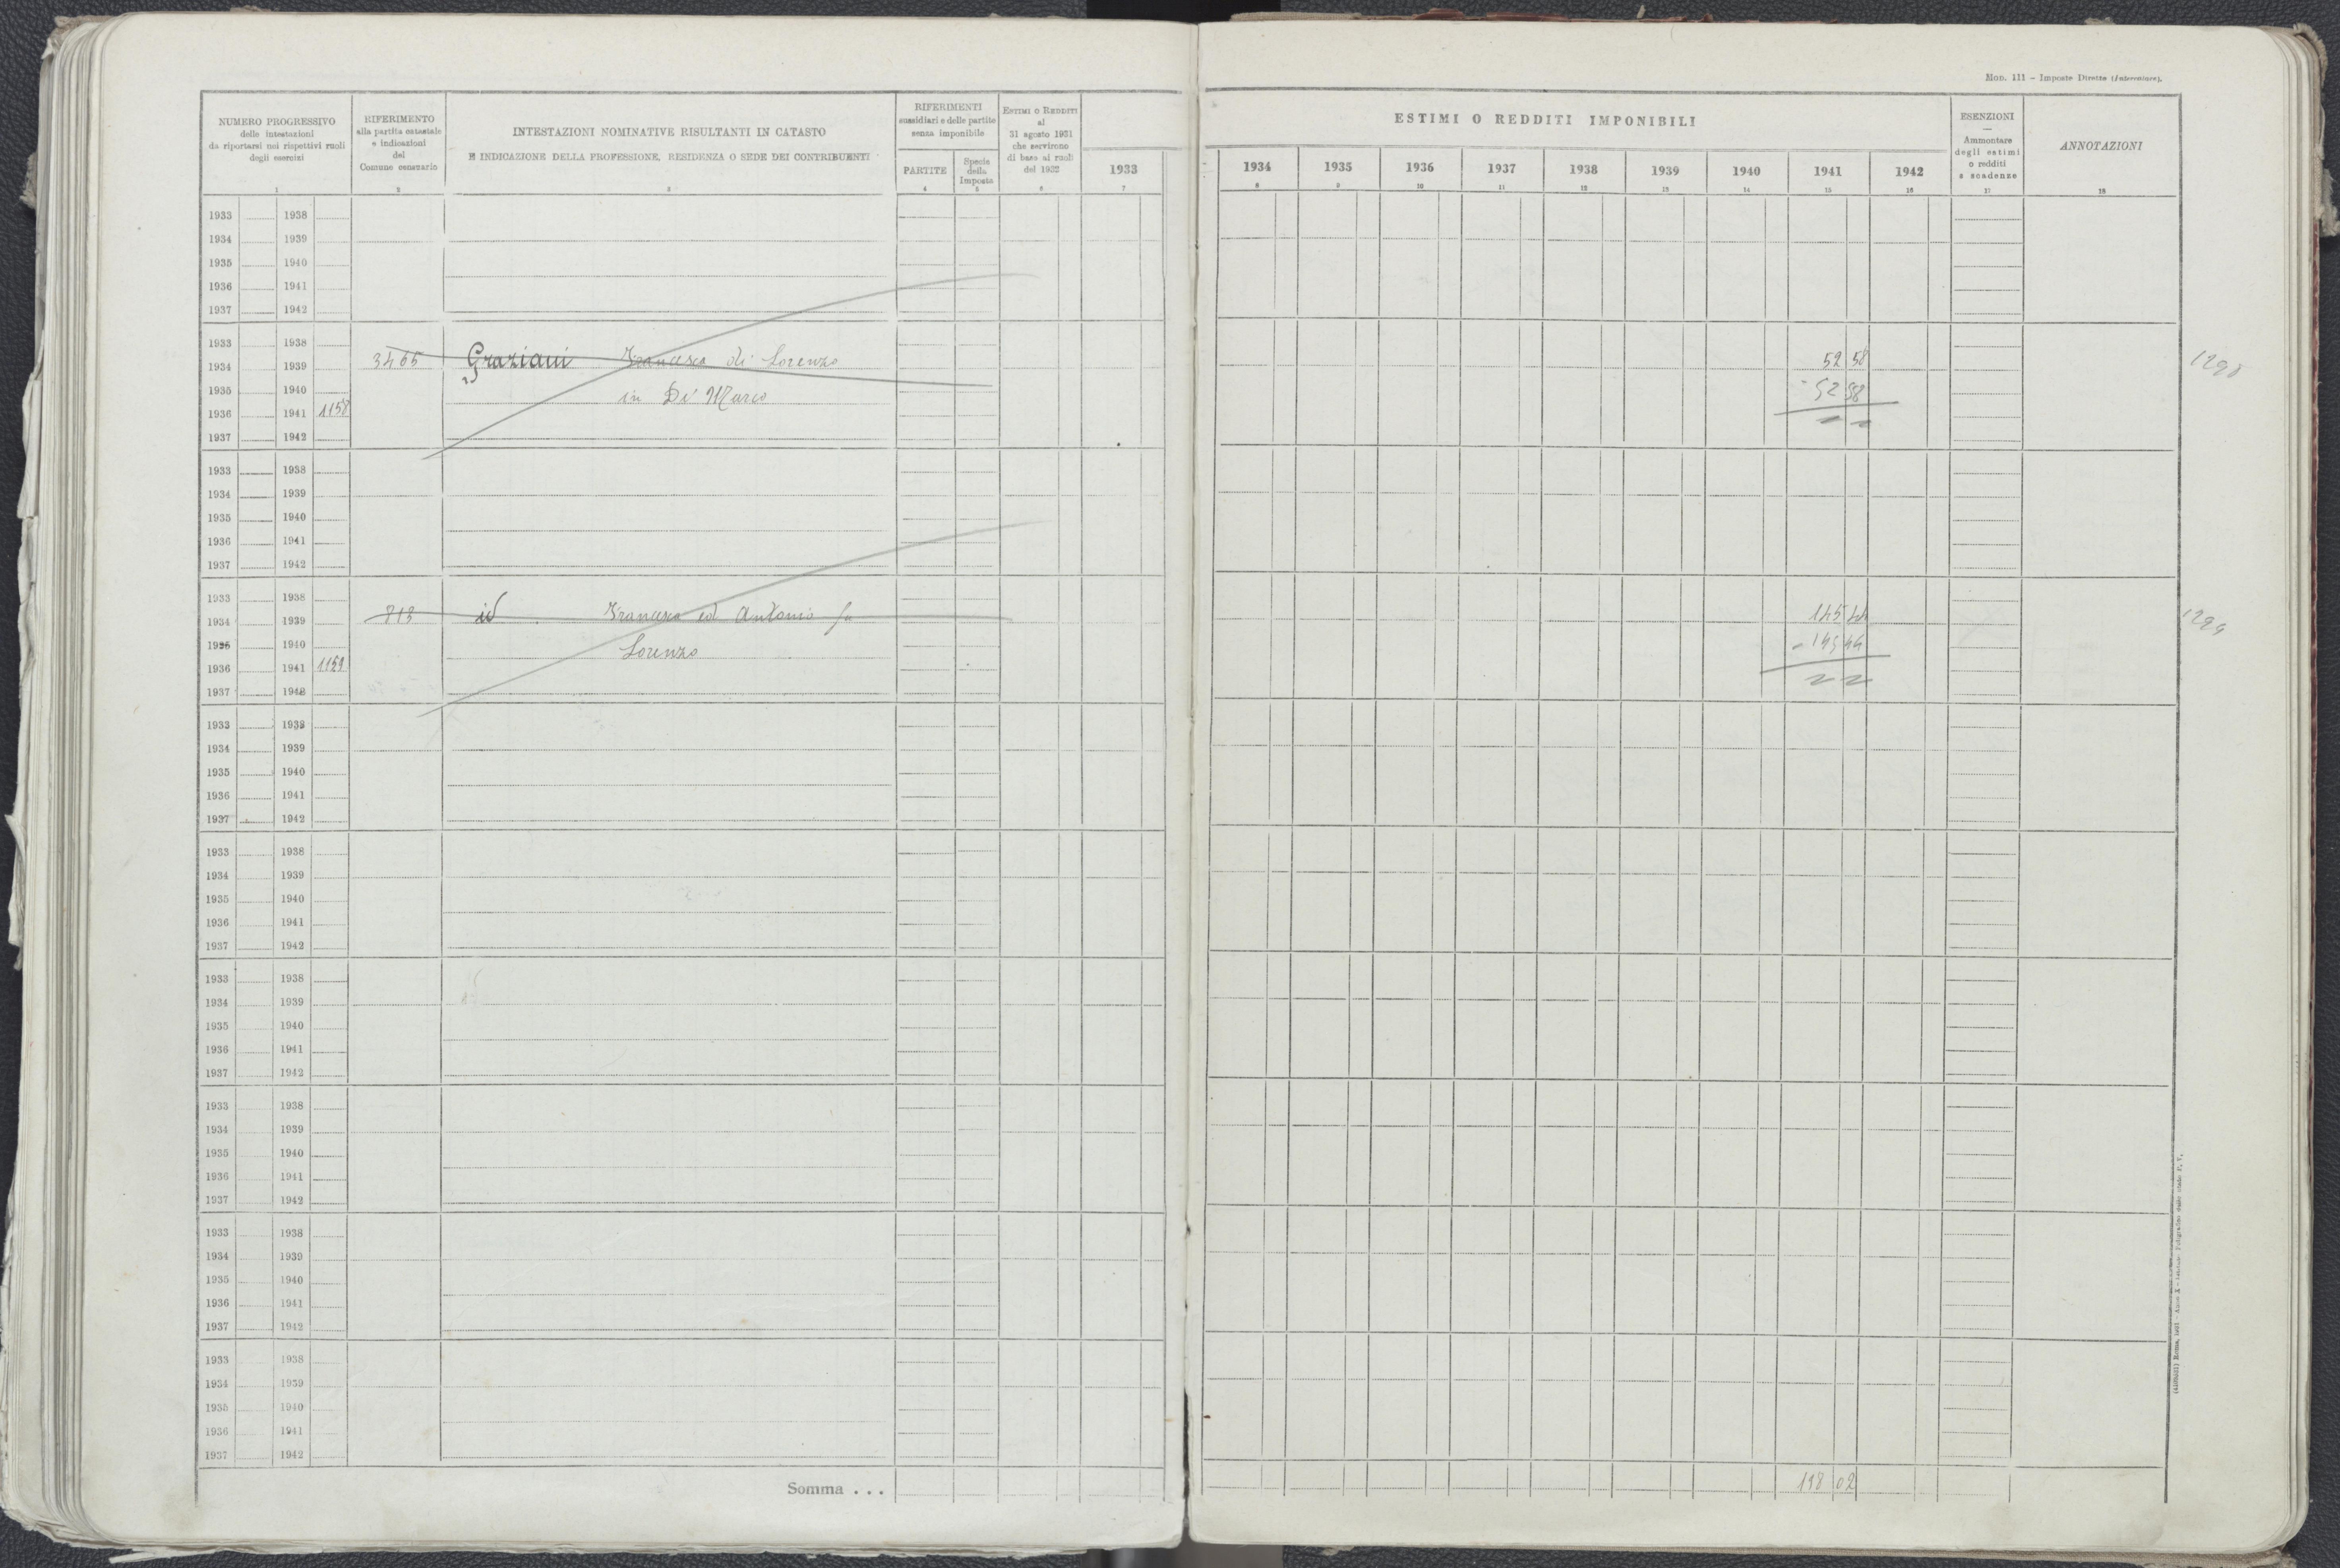 Mod. 111 – Imposte Dirette (Intercalare).
NUMERO PROGRESSIVO
delle intestazioni
da riportarsi nei rispettivi ruoli
degli esercizi
1
RIFERIMENTO
alla partita catastale
e indicazioni
del
Comune censuario
2
INTESTAZIONI NOMINATIVE RISULTANTI IN CATASTO
E INDICAZIONE DELLA PROFESSIONE, RESIDENZA O SEDE DEI CONTRIBUENTI
3
RIFERIMENTI
sussidiari e delle partite
senza imponibile
PARTITE
4
Specie
della
Imposta
5
ESTIMI O REDDITI
al
31 agosto 1931
che servirono
di base ai ruoli
del 1932
6
1933
7
ESTIMI O REDDITI IMPONIBILI
1934 1935 1936 1937 1938 1939 1940 1941 1942
8 9 10 11 12 13 14 15 16
ESENZIONI
—
Ammontare
degli estimi
o redditi
e scadenze
17
ANNOTAZIONI
18
1933 1938
1934 1939
1935 1940
1936 1941
1937 1942
1933 1938
1934 1939 3465 Graziani Francesca di Lorenzo 52 58
1935 1940 in Di Marco - 52 58
1936 1941 1158
1937 1942
1933 1938
1934 1939
1935 1940
1936 1941
1937 1942
1933 1938
1934 1939 713 id Francesco ed Antonio fu 145 44 1299
1935 1940 Lorenzo - 145 44
1936 1941 1159
1937 1942
1933 1938
1934 1939
1935 1940
1936 1941
1937 1942
1933 1938
1934 1939
1935 1940
1936 1941
1937 1942
1933 1938
1934 1939
1935 1940
1936 1941
1937 1942
1933 1938
1934 1939
1935 1940
1936 1941
1937 1942
1933 1938
1934 1939
1935 1940
1936 1941
1937 1942
1933 1938
1934 1939
1935 1940
1936 1941
1937 1942
Somma . . . 198 02